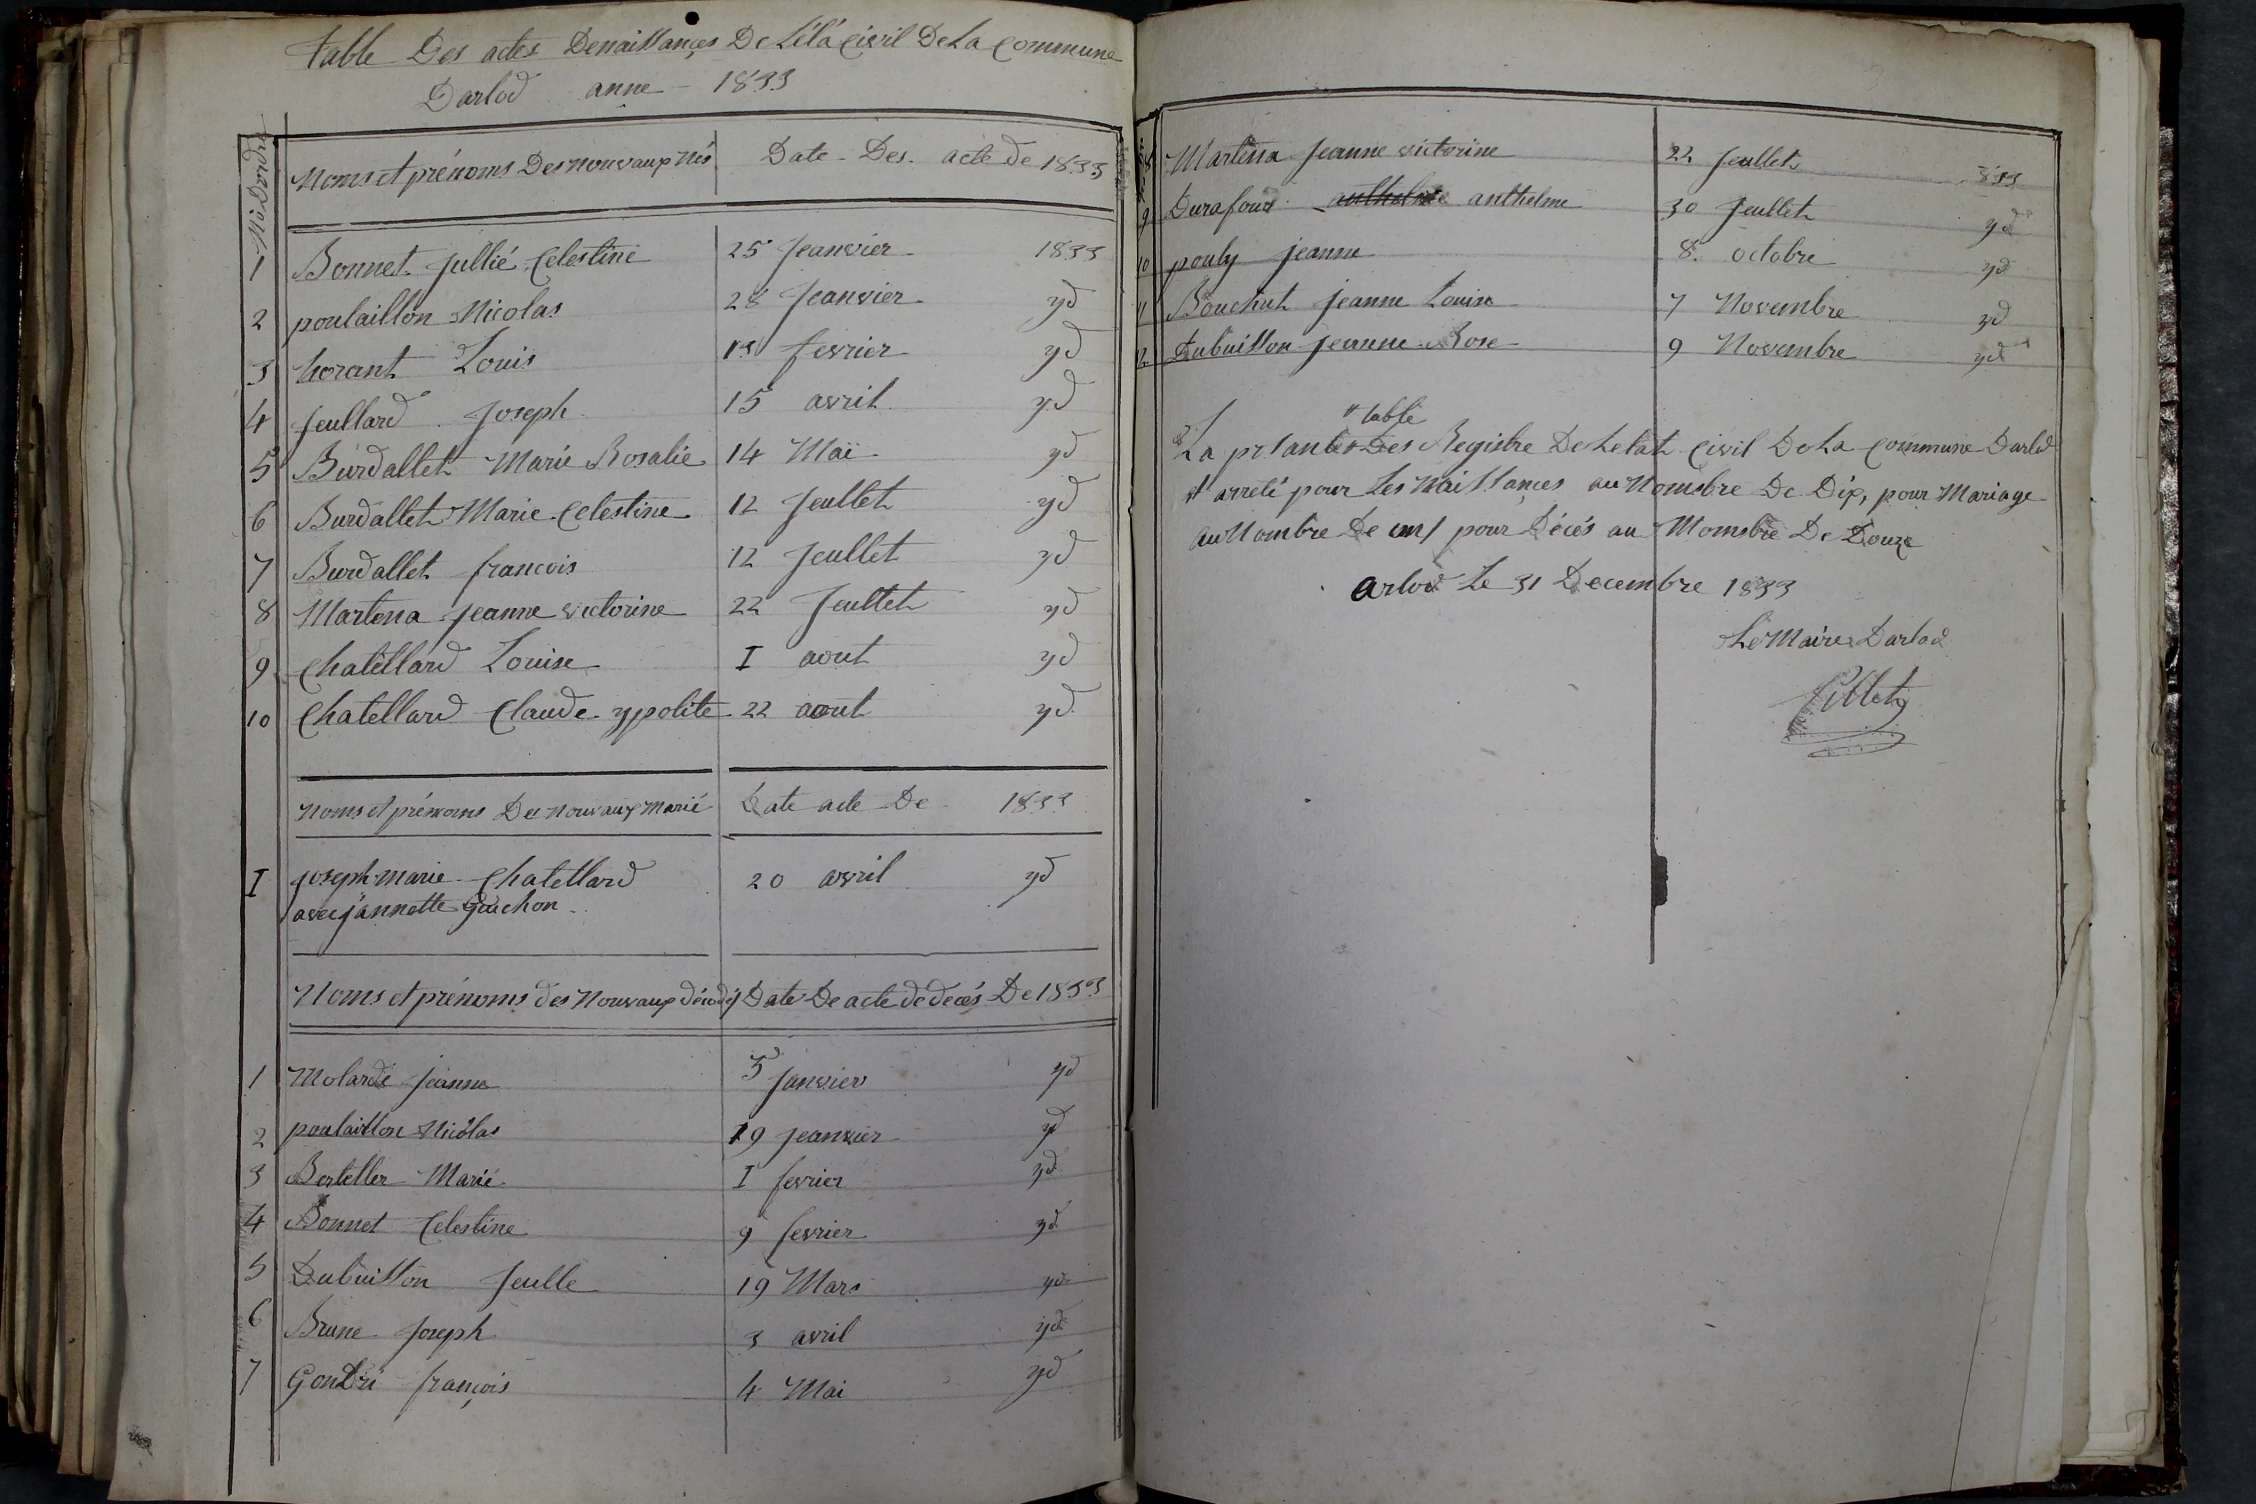 Table Des actes Denaissançes De L'éta Civil De La Commune
Darlod anne - 1833
No Dordre
Noms et prénoms Des nouvaux Nés Date Des acte de 1833
1 Bonnet Jullié Celestine 25 Jeanvier 1833
2 poulaillon Nicolas 28 Jeanvier yd
3 horant Louis fevrier yd
4 Jeullard Joseph 15 avril yd
5 Burdallet Marie Rosalie 14 Maï yd
6 Burdallet Marie Celestine 12 Jeullet yd
7 Burdallet francois 12 Jeullet yd
8 Martena Jeanne victorine 22 Jeullet yd
9 Chatellard Louise I aout yd
10 Chatellard Claude ypolite 22 aout yd
Noms et prénoms De nouvaux Marié Date acte De 1833
I joseph marie Chatellard 20 avril yd
avec jannette Guichon
Noms et prénoms des Nouvaux décedé Date De acte de decés De 1833
1 Molarde Jeanne 5 janvier yd
2 poulaillon Nicolas 19 jeanvier yd
3 Berteller Marié I fevrier yd
4 Bonnet Celestine 9 fevrier yd
5 Dubuisson Jeulle 19 Mars yd
6 Brune Joseph 3 avril yd
7 Gondri françois 4 Mai yd
8 Martena Jeanne victorine 22 Jeullet 833
9 Durafour anthelme anthelme 30 Jeullet yd
10 pouly jeanne 8 octobre yd
11 Bouchut jeanne Louise 7 Novembre yd
12 Dubuisson jeanne Rose 9 Novembre yd
table
La présante Des Registre De Letat Civil De La Commune Darlod
et arreté pour Les Naissançes au Nombre De Dix, pour Mariage
au Nombre De un / pour Décés au Nombre De Douze
arlod Le 31 Decembre 1833
Le Maire Darlod